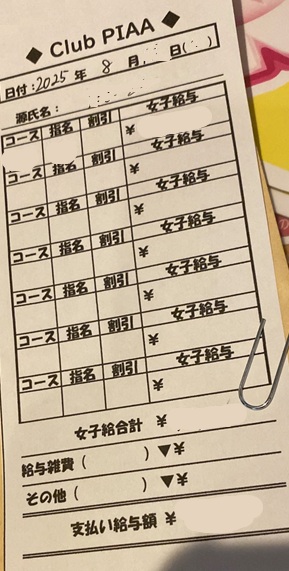 ◆ Club PIAA ◆
日付:2025 年 8 月 日( )
源氏名:
コース 指名 割引 女子給与
¥
コース 指名 割引 女子給与
¥
コース 指名 割引 女子給与
¥
コース 指名 割引 女子給与
¥
コース 指名 割引 女子給与
¥
コース 指名 割引 女子給与
¥
コース 指名 割引 女子給与
¥
女子給合計 ¥
給与雑費 ( ) ▼¥
その他 ( ) ▼¥
支払い給与額 ¥